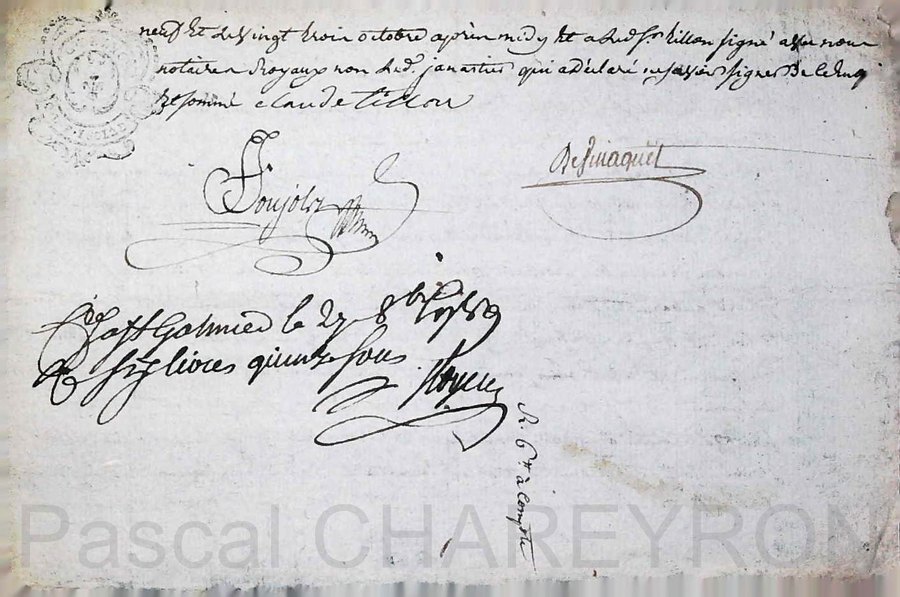 neuf et le vingt trois octobre après midy et a led. Sr. tillon signé avec nous
notaires Royaux non led. janastus qui a déclaré ne savoir signer de ce enq
et sommé claude tillon
Poujolz
Desmaquet
Cé à St Galmier le 27 8bre 1789
six livres quinze sous
R. 6tt à compte
Pascal CHAREYRON